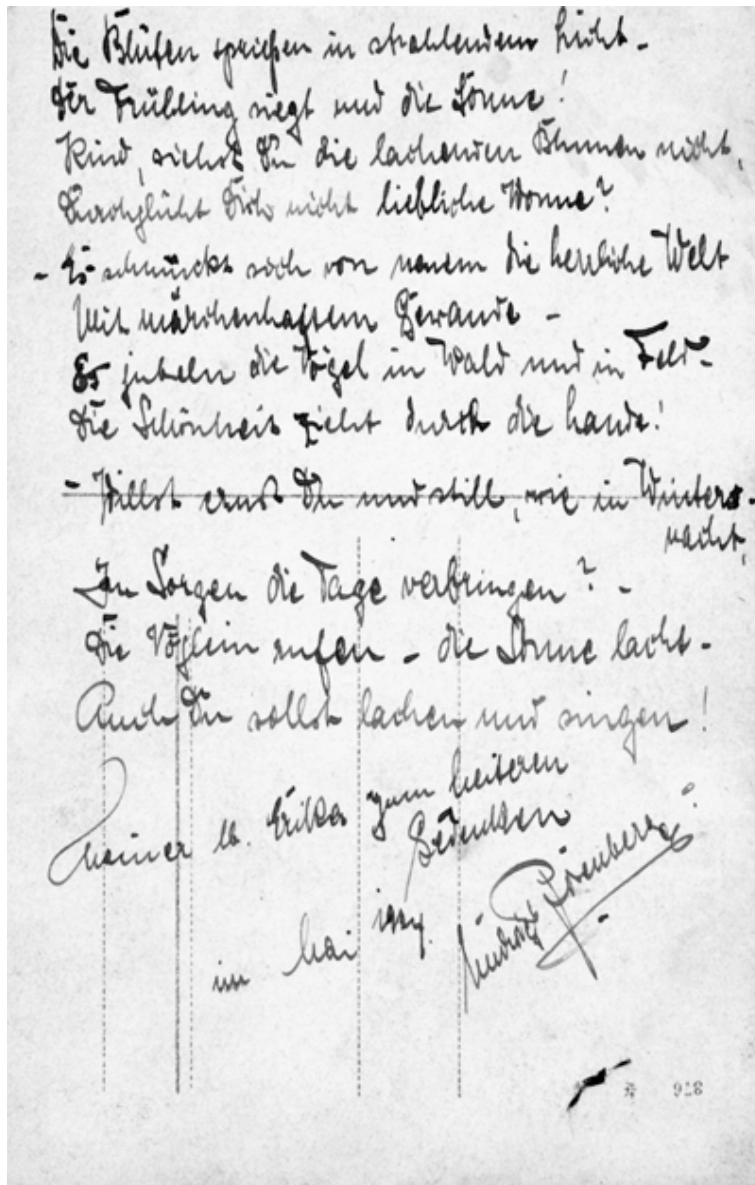 Die Blüten sprießen in strahlendem Licht -
Der Frühling siegt und die Sonne!
Kind, siehst Du die lachenden Blumen nicht,
Durchglüht Dich nicht liebliche Wonne?
- Es schmückt sich von neuem die herrliche Welt
Mit märchenhaftem Gewande -
Es jubeln die Vögel in Wald und in Feld -
Die Schönheit zieht durch die Lande!
- Willst ernst Du und still, wie in Winters-
nacht,
In Sorgen die Tage verbringen? -
Die Vöglein rufen - die Sonne lacht -
Auch Du sollst lachen und singen!
Meiner lb. Erika zum heiteren
Gedenken
im Mai
928